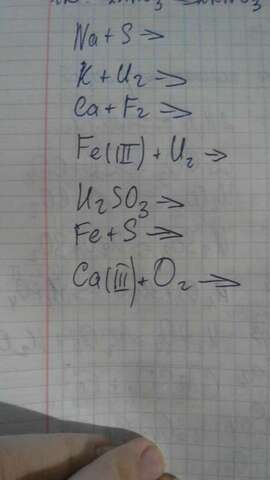 Na + S →
K + H₂ →
Ca + F₂ →
Fe(III) + H₂ →
H₂SO₃ →
Fe + S →
Ca(III) + O₂ →